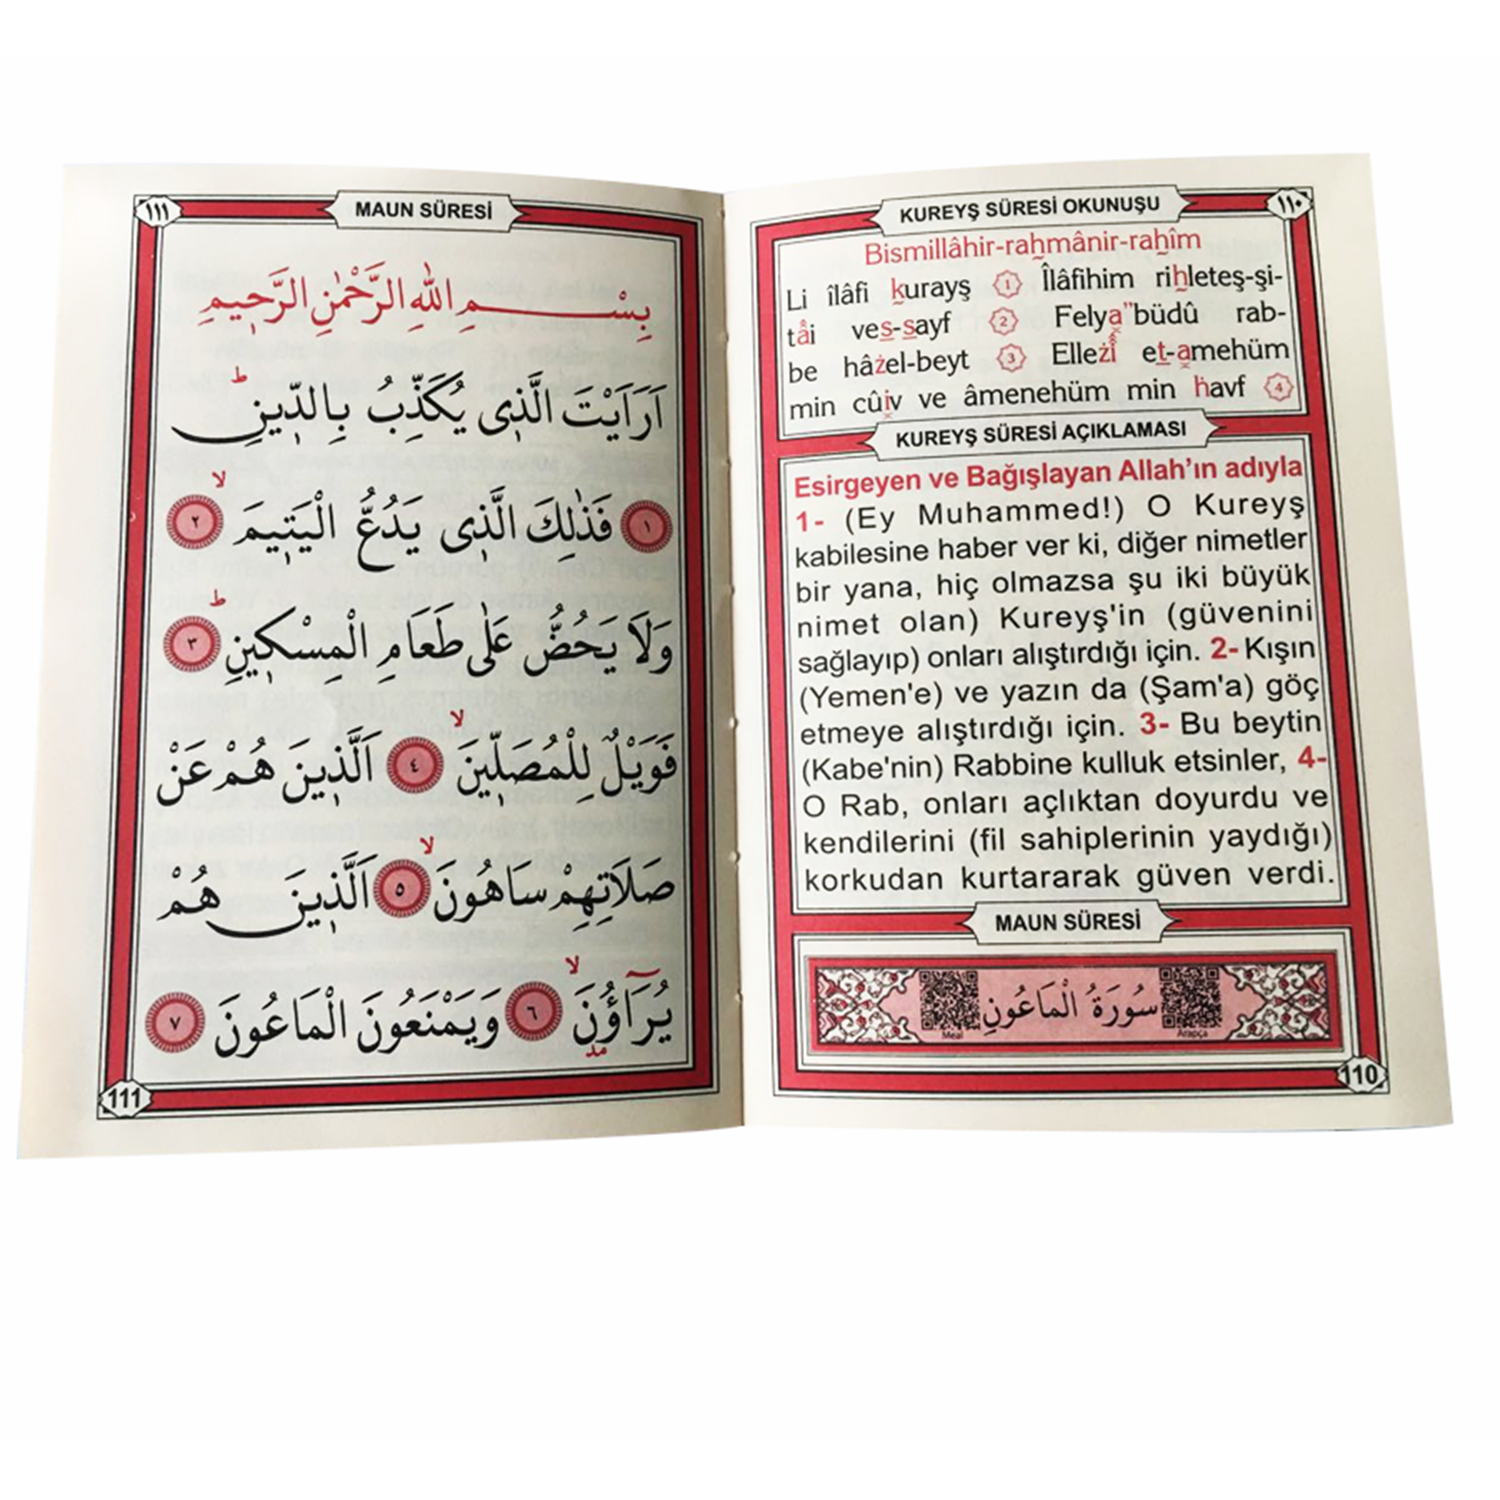 ١١٠
KUREYŞ SÛRESİ OKUNUŞU
Bismillâhir-rahmânir-rahîm
Li îlâfi kurayş ۝1 Îlâfihim rihleteş-şi-
tâi ves-sayf ۝2 Felya”büdû rab-
be hâżel-beyt ۝3 Elleżî et-amehüm
min cûiv ve âmenehüm min havf ۝4
KUREYŞ SÛRESİ AÇIKLAMASI
Esirgeyen ve Bağışlayan Allah’ın adıyla
1- (Ey Muhammed!) O Kureyş
kabilesine haber ver ki, diğer nimetler
bir yana, hiç olmazsa şu iki büyük
nimet olan) Kureyş'in (güvenini
sağlayıp) onları alıştırdığı için. 2- Kışın
(Yemen'e) ve yazın da (Şam'a) göç
etmeye alıştırdığı için. 3- Bu beytin
(Kabe'nin) Rabbine kulluk etsinler, 4-
O Rab, onları açlıktan doyurdu ve
kendilerini (fil sahiplerinin yaydığı)
korkudan kurtararak güven verdi.
MAUN SÛRESİ
سُورَةُ الْمَاعُونِ
Arapça
Meal
110
١١١
MAUN SÛRESİ
بِسْمِ اللهِ الرَّحْمٰنِ الرَّحٖيمِ
اَرَاَيْتَ الَّذٖى يُكَذِّبُ بِالدّٖينِ ط
١ فَذٰلِكَ الَّذٖى يَدُعُّ الْيَتٖيمَ لا ٢
وَلَا يَحُضُّ عَلٰى طَعَامِ الْمِسْكٖينِ ط ٣
فَوَيْلٌ لِلْمُصَلّٖينَ لا ٤ اَلَّذٖينَ هُمْ عَنْ
صَلَاتِهِمْ سَاهُونَ لا ٥ اَلَّذٖينَ هُمْ
يُرَآؤُنَ لا مد ٦ وَيَمْنَعُونَ الْمَاعُونَ ٧
111